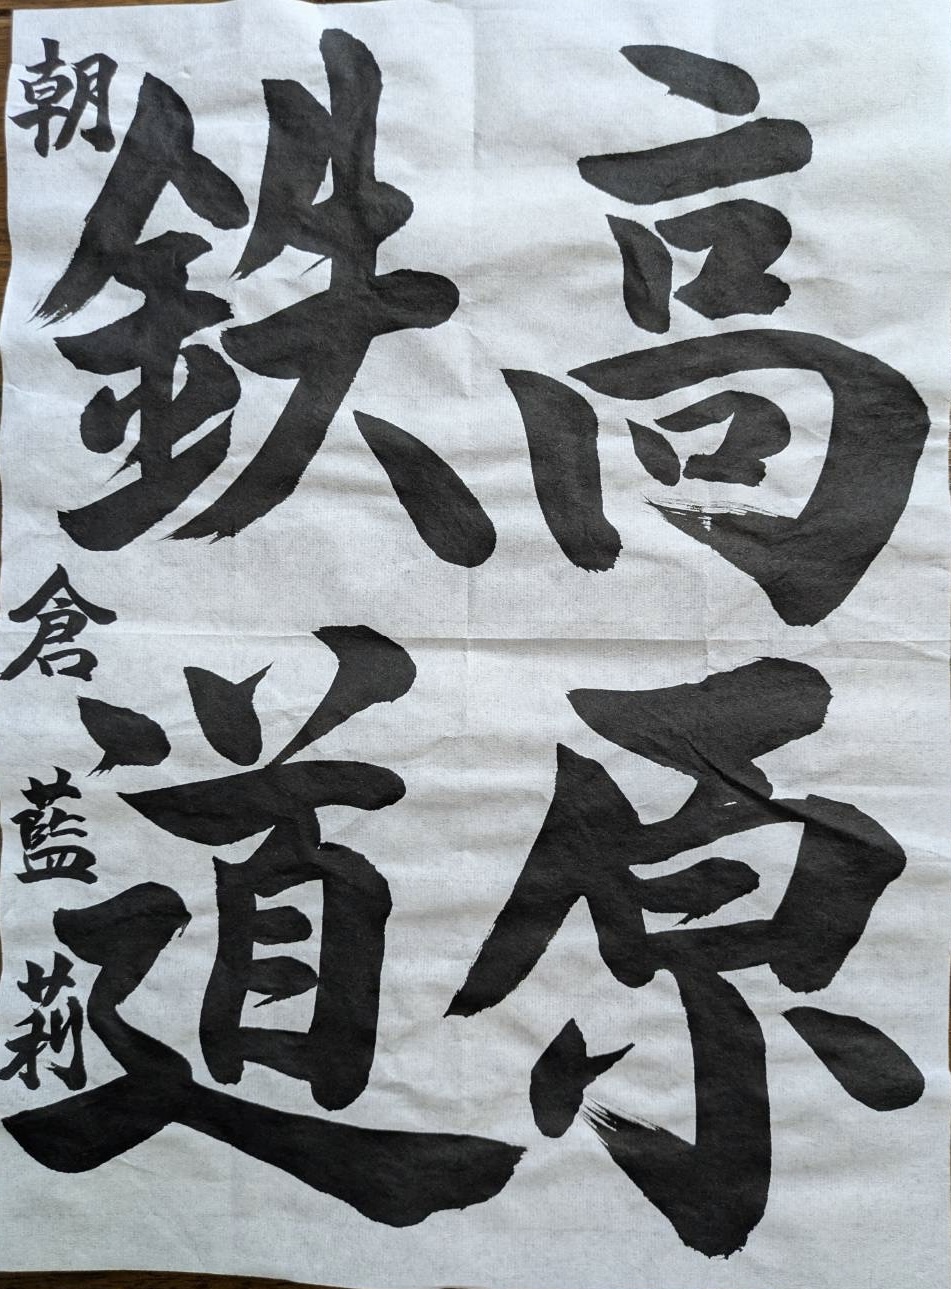 高原
鉄道
朝倉藍莉